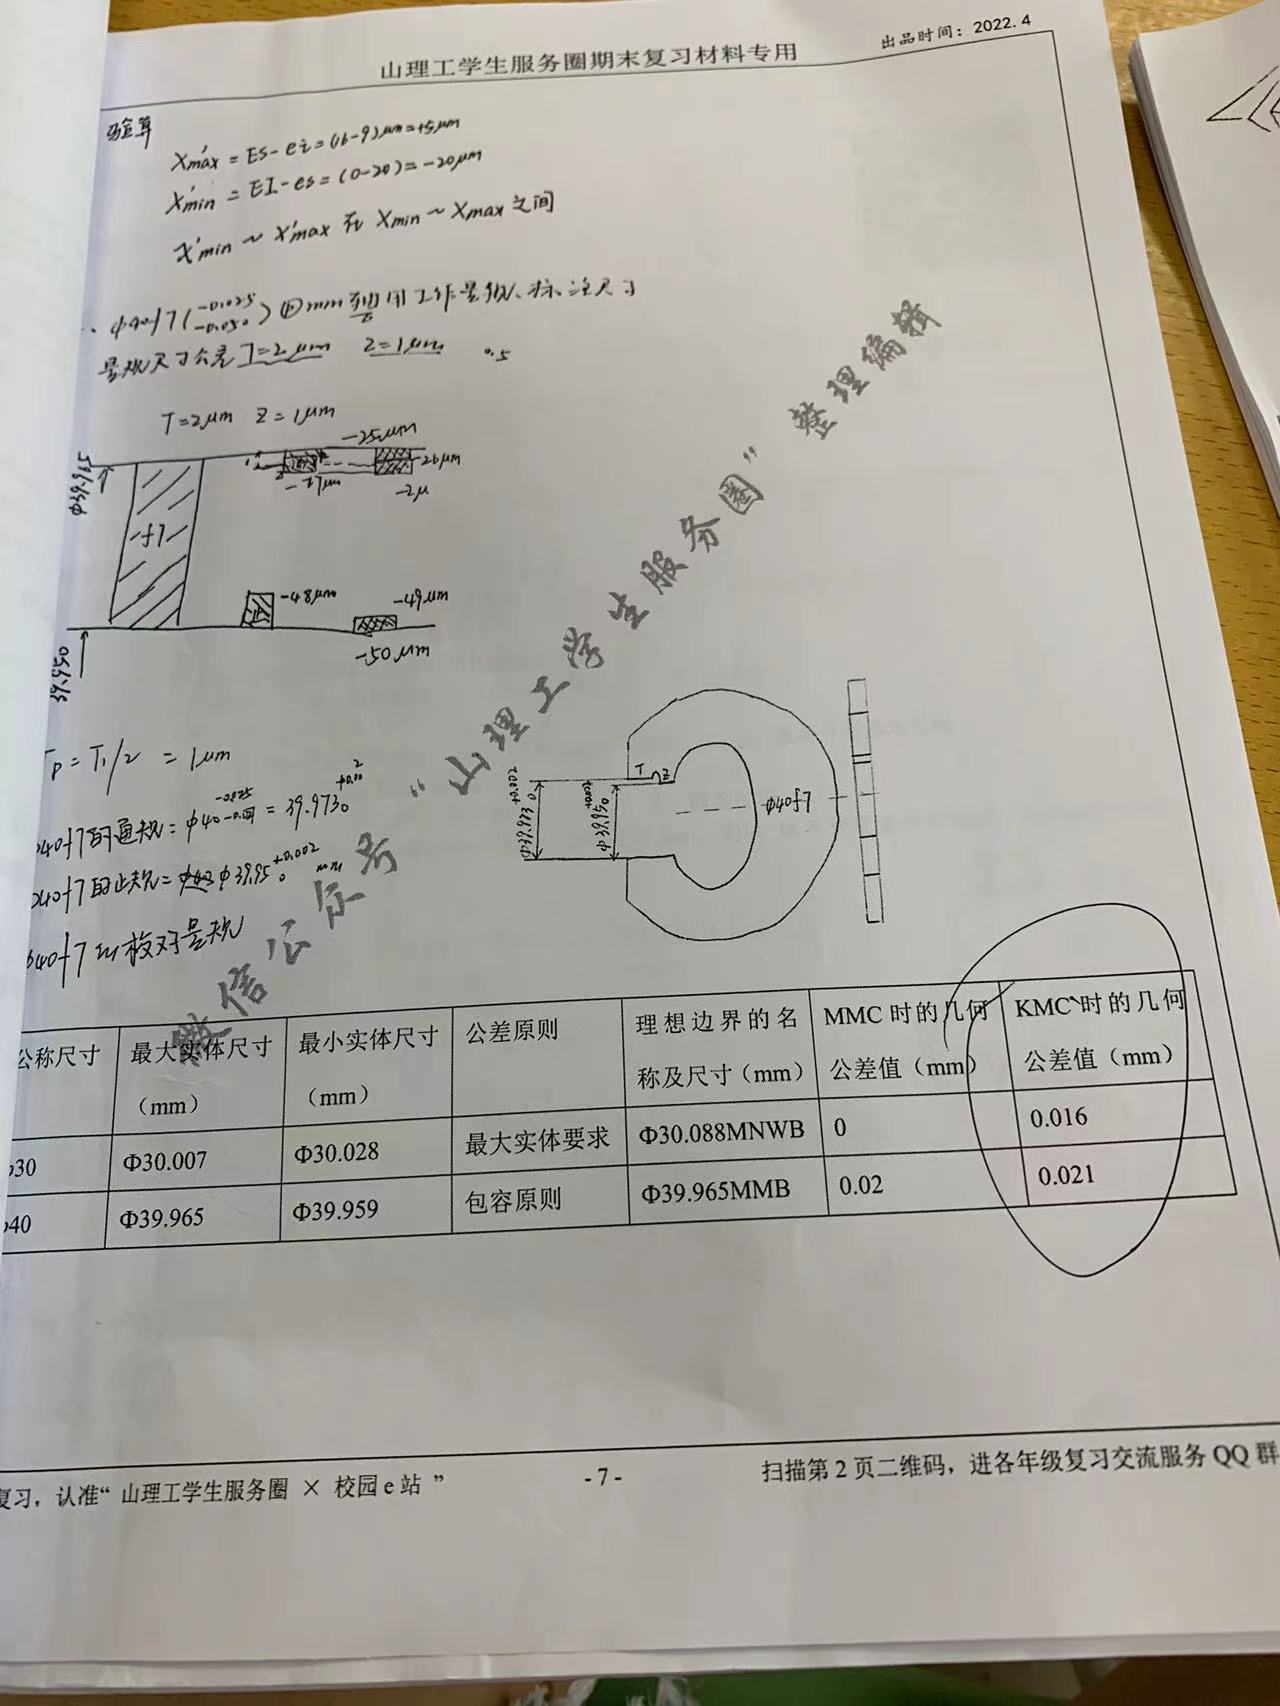 出品时间：2022.4
山理工学生服务圈期末复习材料专用
验算
X'max = ES-ei=(16-9)μm=+5μm
X'min = EI-es=(0-20)=-20μm
X'min ~ X'max 在 Xmin ~ Xmax 之间
φ40f7(-0.025 -0.050)Ⓔmm 用工作量规、标注尺寸
量规尺寸公差T=2μm Z=1μm 0.5
T=2μm Z=1μm
-25μm
-26μm
-27μm
-2μ
φ39.975
f7
-48μm
止
-49μm
-50μm
39.950
Tp=T1/2 = 1μm
φ40f7的通规=φ40 = 39.973 +0.002 0
40f7的止规= φ39.95 +0.002 0 mm
φ40f7的校对量规
T Z
φ40f7
公称尺寸 最大实体尺寸（mm） 最小实体尺寸（mm） 公差原则 理想边界的名称及尺寸（mm） MMC 时的几何公差值（mm） KMC 时的几何公差值（mm）
φ30 Φ30.007 Φ30.028 最大实体要求 Φ30.088MNWB 0 0.016
φ40 Φ39.965 Φ39.959 包容原则 Φ39.965MMB 0.02 0.021
微信公众号“山理工学生服务圈”整理编辑
复习，认准“山理工学生服务圈 × 校园 e 站 ”
- 7 -
扫描第 2 页二维码，进各年级复习交流服务 QQ 群